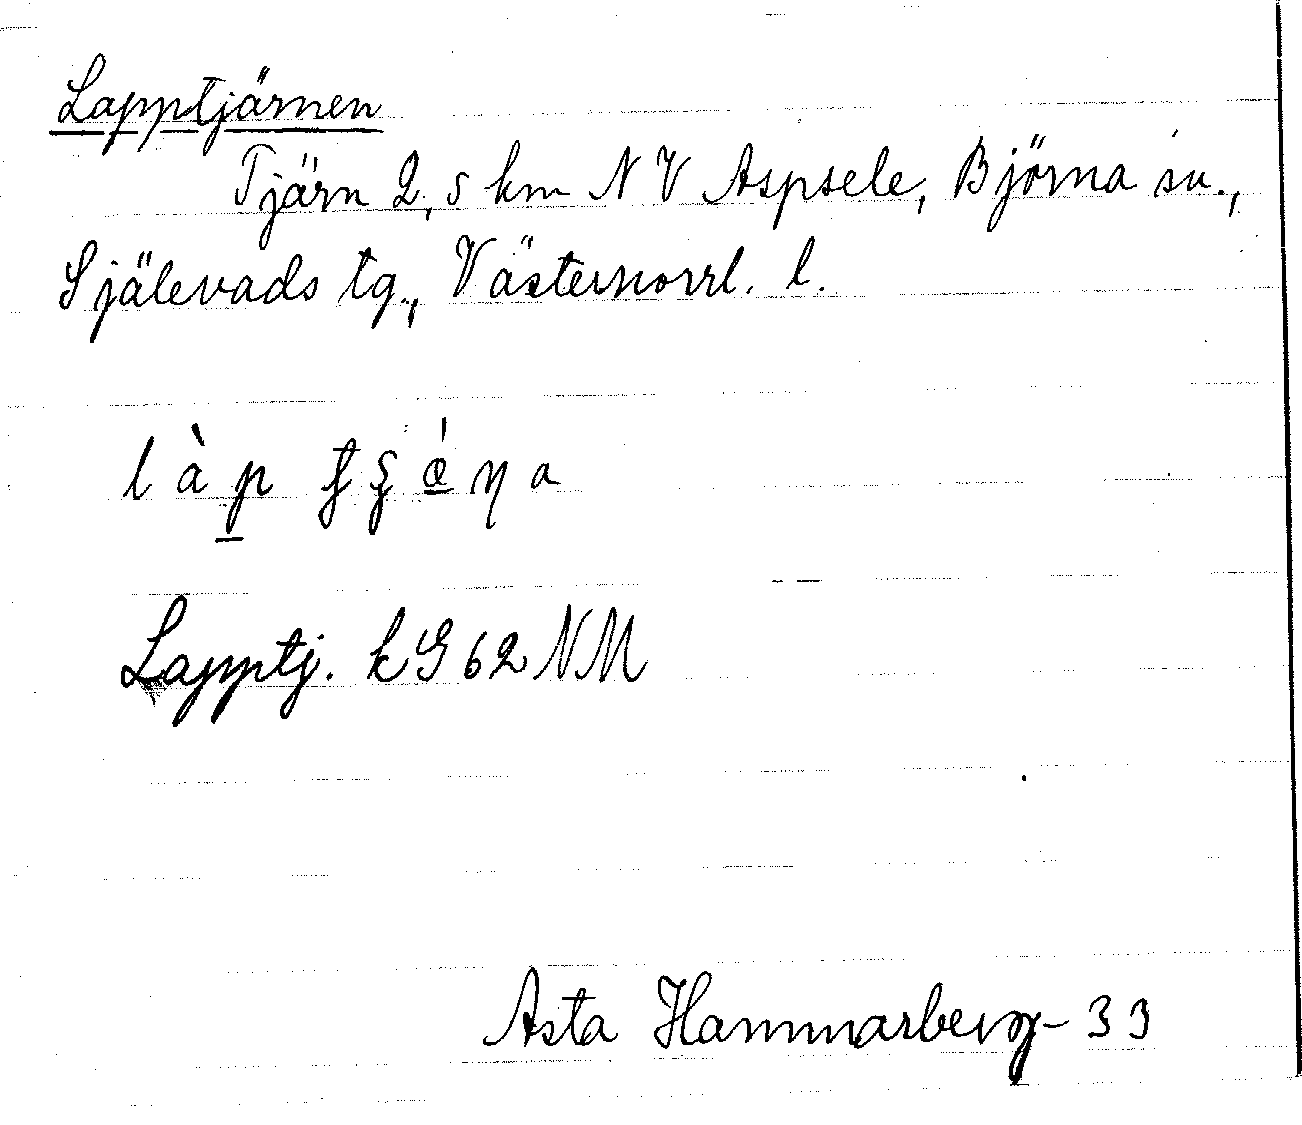 Lapptjärnen
Tjärn 2,5 km NV Aspsele, Björna sn.,
Själevads tg., Västernorrl. l.
làp
Lapptj. kG 62 NM
Asta Hammarberg - 33